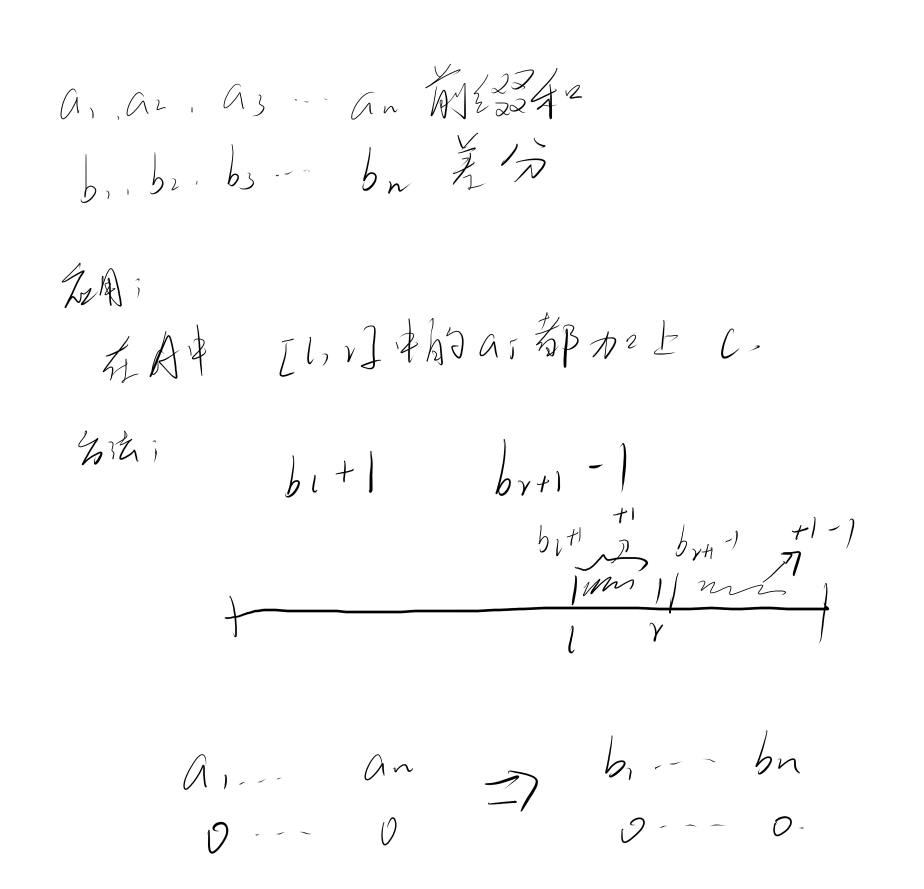 a₁, a₂, a₃ ⋯ aₙ 前缀和
b₁, b₂, b₃ ⋯ bₙ 差分
应用;
在A中 [l, r]中的aᵢ都加上 c.
方法;
bₗ+1 bᵣ₊₁-1
+1
bₗ+1 bᵣ₊₁-1 +1-1
l r
a₁ ⋯ aₙ ⇒ b₁ ⋯ bₙ
0 ⋯ 0 0 ⋯ 0.